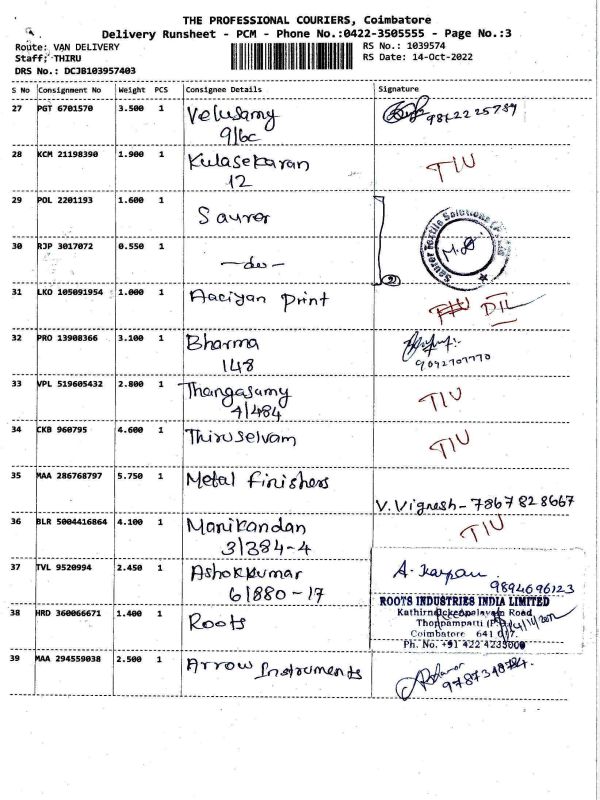 THE PROFESSIONAL COURIERS, Coimbatore
Delivery Runsheet - PCM - Phone No.:0422-3505555 - Page No.:3
Route: VAN DELIVERY
RS No.: 1039574
Staff: THIRU
RS Date: 14-Oct-2022
DRS No.: DCJB103957403
S No Consignment No Weight PCS Consignee Details Signature
27 PGT 6701570 3.500 1 Velusamy 9822225789
9/6c
28 KCM 21198390 1.900 1 Kulasekaran TIU
12
29 POL 2201193 1.600 1 Saurer
30 RJP 3017072 0.550 1 -do-
31 LKO 105091954 1.000 1 Aaciyan Print DIL
32 PRO 13908366 3.100 1 Bharma
148 9092707770
33 VPL 519605432 2.800 1 Thangasamy TIU
4/484
34 CKB 960795 4.600 1 Thiruselvam TIU
35 MAA 286768797 5.750 1 Metal Finishers
V. Vignesh - 7867828667
36 BLR 5004416864 4.100 1 Manikandan TIU
3/384-4
37 TVL 9520994 2.450 1 Ashokkumar
6/880-17 9894696123
ROOTS INDUSTRIES INDIA LIMITED
38 HRD 360066671 1.400 1 Roots
Thoppampatti
Coimbatore 641 017.
Ph. No. +91 422 4233000
39 MAA 294559038 2.500 1 Arrow Instruments